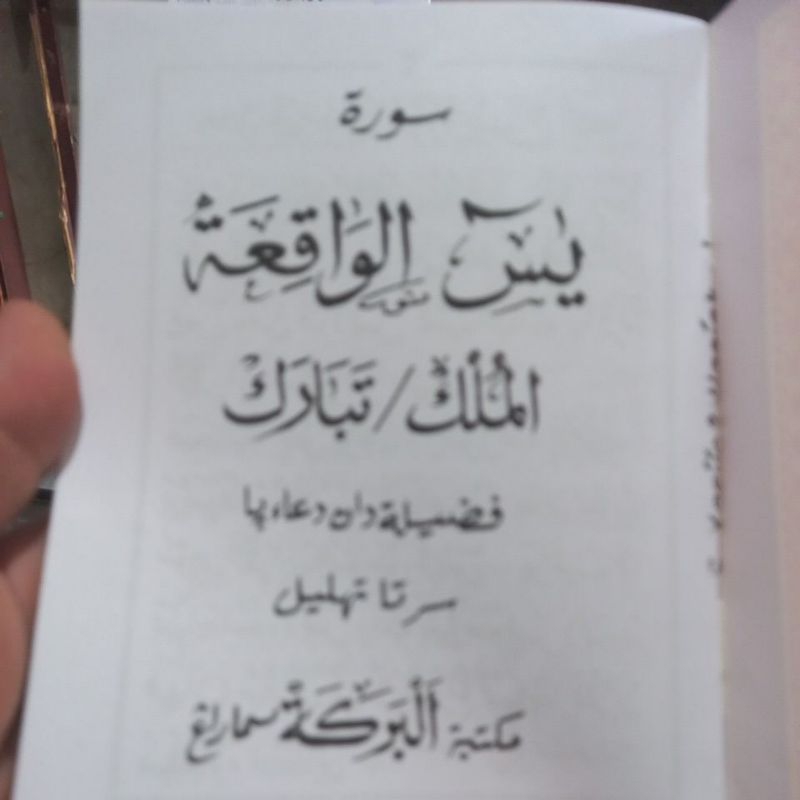 سورة
يٰسٓ الْوَاقِعَةْ
الْمُلْكْ / تَبَارَكَ
فضيلة دان دعاءپا
سرتا تهليل
مكتبة اَلْبَرَكَةْ سماراڠ